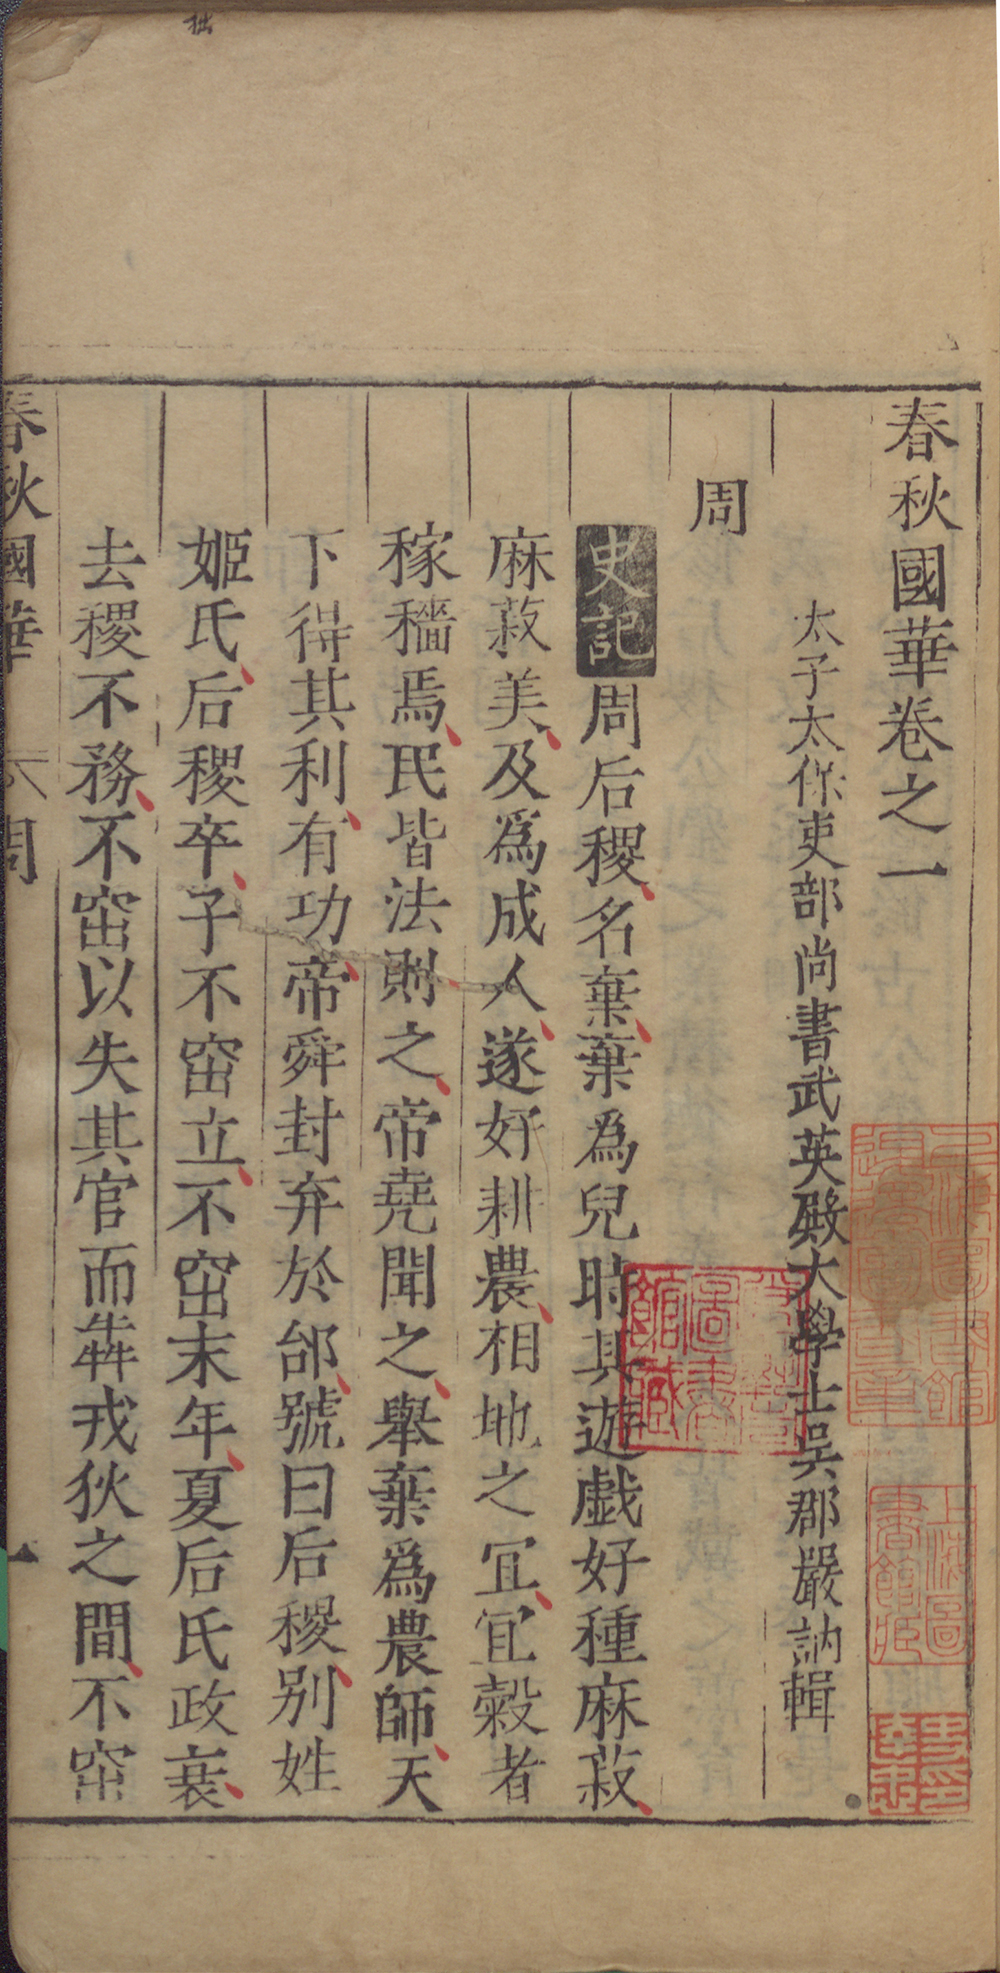 春秋國華卷之一
太子太保吏部尚書武英殿大學士吳郡嚴訥輯
周
史記周后稷名棄棄為兒時其遊戲好種麻菽
麻菽美及為成人遂好耕農相地之宜宜穀者
稼穡焉民皆法則之帝堯聞之舉棄為農師天
下得其利有功帝舜封弃於邰號曰后稷別姓
姬氏后稷卒子不窋立不窋末年夏后氏政衰
去稷不務不窋以失其官而犇戎狄之間不窋
春秋國華 周 一
上海圖書館藏